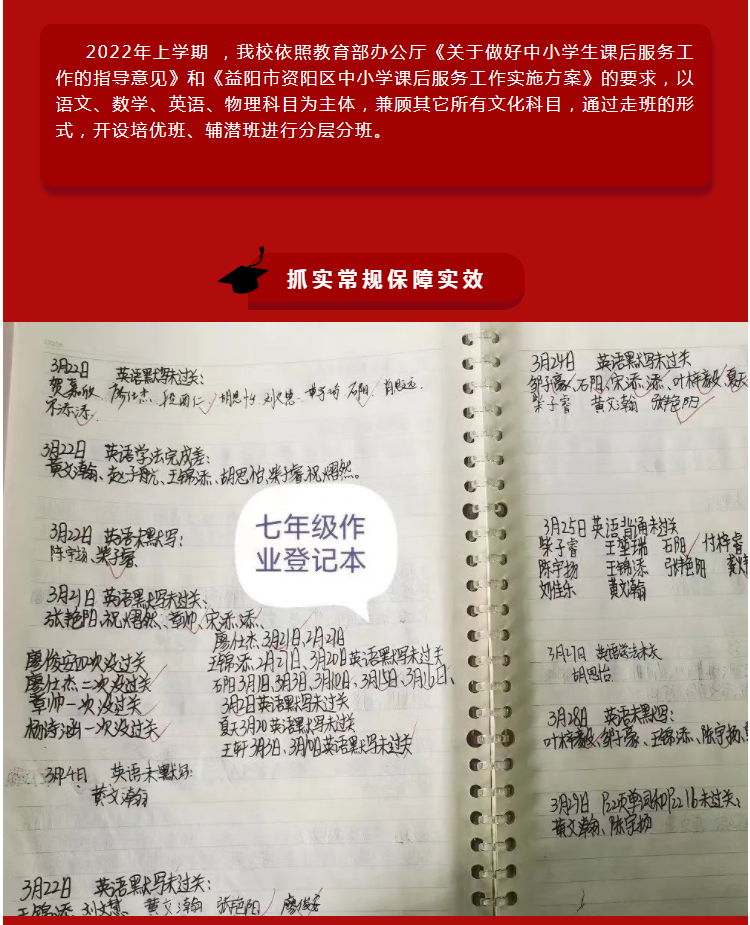 2022年上学期 ，我校依照教育部办公厅《关于做好中小学生课后服务工
作的指导意见》和《益阳市资阳区中小学课后服务工作实施方案》的要求，以
语文、数学、英语、物理科目为主体，兼顾其它所有文化科目，通过走班的形
式，开设培优班、辅潜班进行分层分班。
抓实常规保障实效
3月22日 英语默写未过关：
贺嘉欣 廖仕杰 胡思怡 石阳
宋添添
3月22日 英语学法完成差：
黄文瀚、赵子航、王锦添、胡思怡、柴子睿、祝熠然。
3月22日 英语未默写：
陈宇扬、柴子睿
七年级作
业登记本
3月21日 英语默写未过关、
张艳阳、祝熠然、章帅、宋添添、
廖仕杰、3月21日、2月27日
廖俊安四次没过关
廖仕杰二次没过关
章帅一次没过关
杨诗涵一次没过关
王锦添、2月27日、3月20日英语默写未过关
石阳3月1日、3月3日、3月10日、3月15日、3月16日、
3月2日英语默写未过关
夏天3月20英语默写未过关
王轩3月3日、3月10日英语默写未过关
3月4日 英语未默写：
黄文瀚
3月22日 英语默写未过关：
王锦添 黄文瀚 张艳阳 廖俊安
3月24日 英语默写未过关
邹子豪、石阳、宋添添、叶梓毅、夏天
柴子睿 黄文瀚 张艳阳
3月25日英语背诵未过关
柴子睿 石阳 付梓睿
陈宇扬 王锦添 张艳阳
刘佳乐 黄文瀚
3月27日
胡思怡
3月28日 英语未默写：
叶梓毅、邹子豪、王锦添、陈宇扬、
3月29日 P22页单词和P22 1b未过关：
黄文瀚、陈宇扬